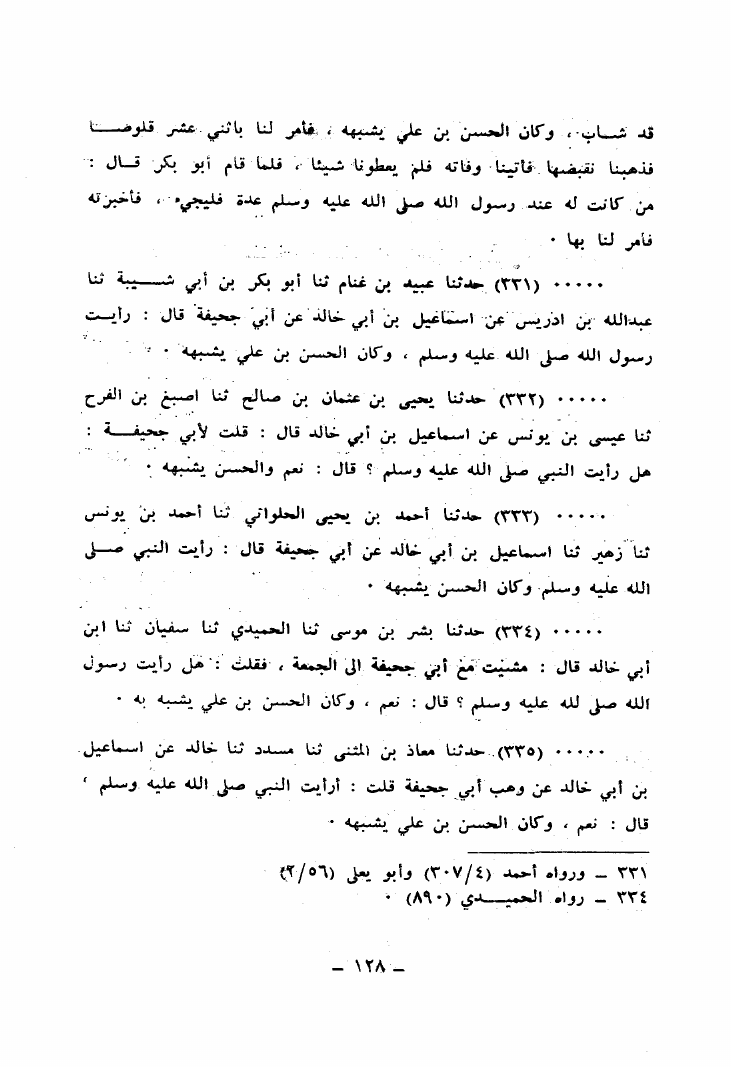 قد شــاب ، وكان الحسن بن علي يشبهه ، فأمر لنا باثني عشر قلوصــا
فذهبنا نقبضها فأتينا وفاته فلم يعطونا شيئا ، فلما قام أبو بكر قــال :
من كانت له عند رسول الله صلى الله عليه وسلم عدة فليجيء ، فأخبرته
فأمر لنا بها ٠
٠٠٠٠٠ (٣٣١) حدثنا عبيد بن غنام ثنا أبو بكر بن أبي شــيبة ثنا
عبدالله بن ادريس عن اسماعيل بن أبي خالد عن أبي جحيفة قال : رأيــت
رسول الله صلى الله عليه وسلم ، وكان الحسن بن علي يشبهه ٠
٠٠٠٠٠ (٣٣٢) حدثنا يحيى بن عثمان بن صالح ثنا اصبغ بن الفرح
ثنا عيسى بن يونس عن اسماعيل بن أبي خالد قال : قلت لأبي جحيفــة :
هل رأيت النبي صلى الله عليه وسلم ؟ قال : نعم والحسن يشبهه ٠
٠٠٠٠٠ (٣٣٣) حدثنا أحمد بن يحيى الحلواني ثنا أحمد بن يونس
ثنا زهير ثنا اسماعيل بن أبي خالد عن أبي جحيفة قال : رأيت النبي صــلى
الله عليه وسلم وكان الحسن يشبهه ٠
٠٠٠٠٠ (٣٣٤) حدثنا بشر بن موسى ثنا الحميدي ثنا سفيان ثنا ابن
أبي خالد قال : مشيت مع أبي جحيفة الى الجمعة ، فقلت : هل رأيت رسول
الله صلى لله عليه وسلم ؟ قال : نعم ، وكان الحسن بن علي يشبه به ٠
٠٠٠٠٠ (٣٣٥) حدثنا معاذ بن المثنى ثنا مسدد ثنا خالد عن اسماعيل
بن أبي خالد عن وهب أبي جحيفة قلت : أرأيت النبي صلى الله عليه وسلم ،
قال : نعم ، وكان الحسن بن علي يشبهه ٠
٣٣١ ــ ورواه أحمد (٣٠٧/٤) وأبو يعلى (٢/٥٦)
٣٣٤ ــ رواه الحميــدي (٨٩٠) ٠
ــ ١٢٨ ــ